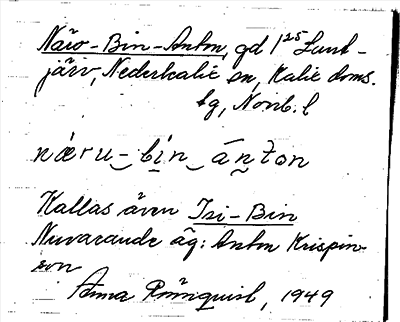 Näro-Bin-Anton, gd 1²⁵ Laut-
järv, Nederkalix sn, Kalix doms.
tg, Norrb. l
næru-bín ánton
Kallas även Isi-Bin
Nuvarande äg: Anton Krispin-
son
Anna Rönnquist, 1949